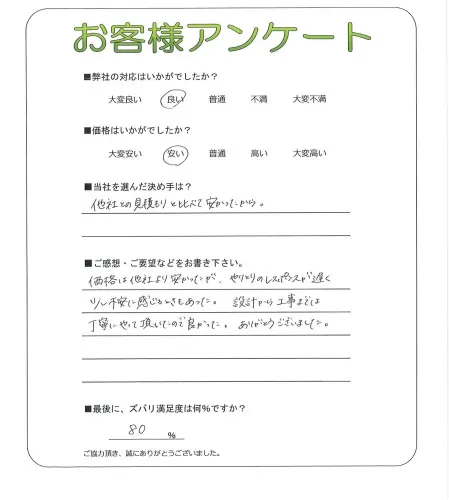 お客様アンケート
■弊社の対応はいかがでしたか？
大変良い 良い 普通 不満 大変不満
■価格はいかがでしたか？
大変安い 安い 普通 高い 大変高い
■当社を選んだ決め手は？
他社との見積もりと比べて安かったから。
■ご感想・ご要望などをお書き下さい。
価格は他社より安かったが、やりとりのレスポンスが遅く
少し不安に感じるときもあった。設計から工事までは
丁寧にやって頂いたので良かった。ありがとうございました。
■最後に、ズバリ満足度は何％ですか？
80 %
ご協力頂き、誠にありがとうございました。